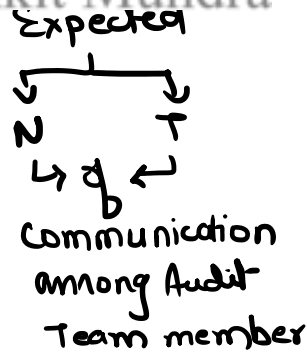 Expected
N T
of
communication
among Audit
Team member